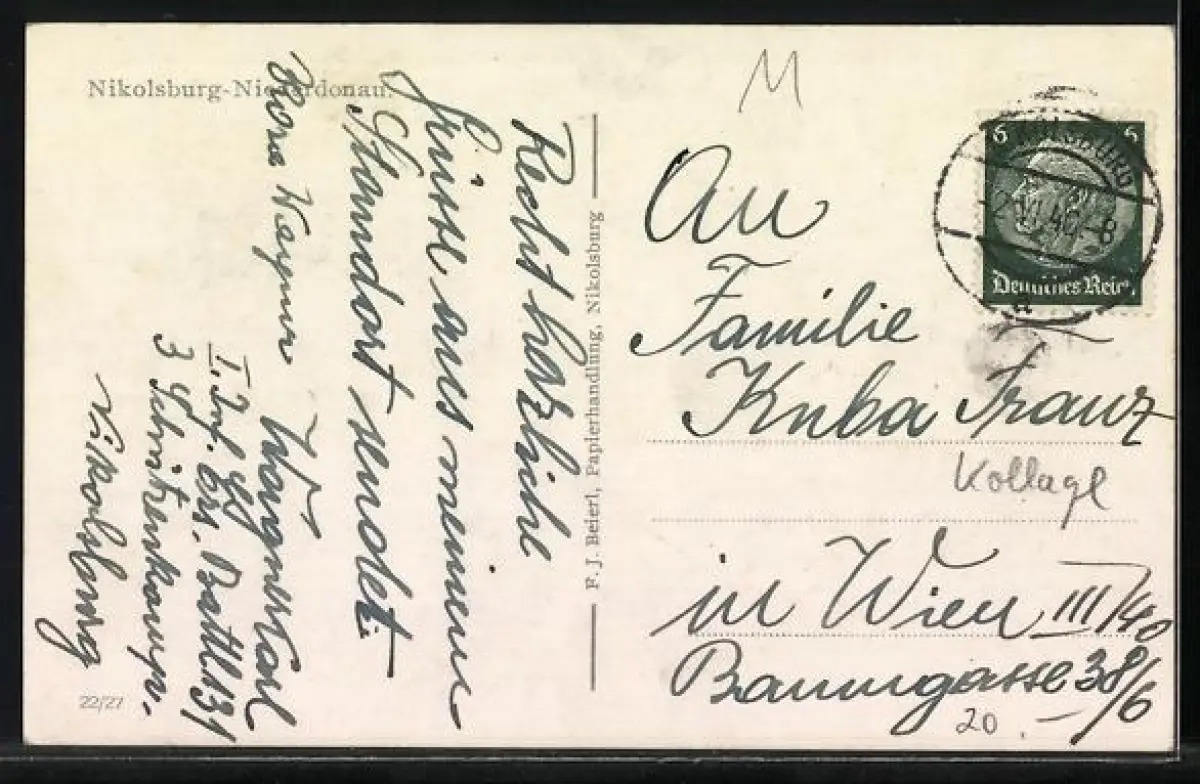 Nikolsburg-Niederdonau.
Recht herzliche
Grüsse aus meinem
Standort sendet
Wagner Karl
I. Inf. Ers. Batl. 131
3 Schützenkomp.
Nikolsburg
Rosa Wagner
22/27
F. J. Beierl, Papierhandlung, Nikolsburg
M
6 6
Deutsches Reich
NIKOLSBURG
40.-8
a
An
Familie
Kuba Franz
Kollage
in Wien III/40
Baumgasse 38/6
20.-